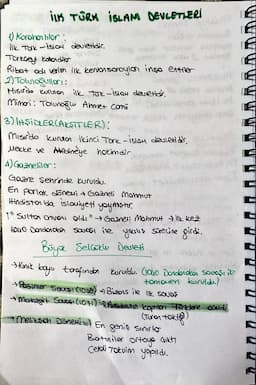 İLK TÜRK İSLAM DEVLETLERİ
1) Karahanlılar:
İlk Türk-İslam devletidir.
Türkçeyi kullandılar
Ribat adı verilen ilk kervansarayları inşa ettiler
2) Tolunoğulları:
Mısır'da kurulan ilk Türk-İslam devletidir.
Mimari: Tolunoğlu Ahmet Camii
3) İHŞİDLER (AKŞİTLER):
Mısır'da kurulan ikinci Türk-İslam devletidir.
Mekke ve Medine'ye hakimdir
4) Gazneliler:
Gazne şehrinde kuruldu.
En parlak dönemi → Gazneli Mahmut
Hindistan'da İslamiyeti yaymıştır.
1° Sultan ünvanı aldı → Gazneli Mahmut → ilk kez
1040 Dandanakan savaşı ile yıkılış sürecine girdi.
Büyük Selçuklu Devleti
→ Kınık boyu tarafından kuruldu. (1040 Dandanakan savaşı ile
tamamen kuruldu)
→ Pasinler Savaşı (1048) → Bizans ile ilk savaş
→ Malazgirt Savaşı (1071) → Anadolu'nun kapıları Türklere açıldı
(Turan taktiği)
→ Melikşah Dönemi → En geniş sınırlar
Batıniler ortaya çıktı
Celali Takvim yapıldı.